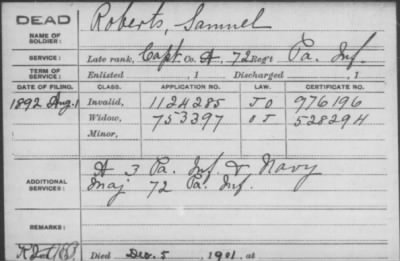 DEAD
Roberts, Samuel
NAME OF SOLDIER:
SERVICE: Late rank, Capt. Co. A, 72 Reg't Pa. Inf.
TERM OF SERVICE: Enlisted , 1 Discharged , 1
DATE OF FILING. CLASS. APPLICATION NO. LAW. CERTIFICATE NO.
1892 Aug. 1 Invalid, 1124285 976196
Widow, 753397 528294
Minor,
ADDITIONAL SERVICES: A 3 Pa. Inf. & Navy
Maj 72 Pa. Inf.
REMARKS:
Died Dec. 5, 1901, at